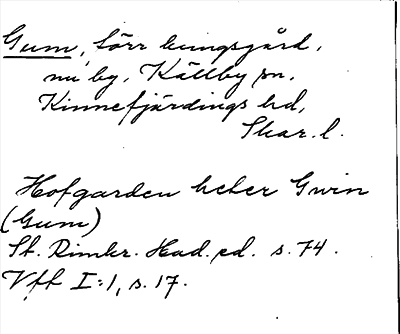 Gum, förr kungsgård,
nu by, Källby sn,
Kinnefjärdings hd,
Skar. l.
Hofgarden heter Gwin
(Gum)
St. Rimkr. Had. ed. s. 74.
Vfft I:1, s. 17.